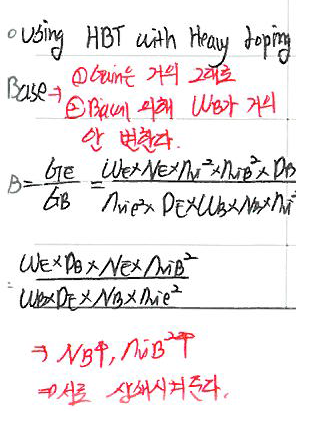 ○ Using HBT with Heavy doping
Base→ ① Gain은 거의 그대로
② Bias에 의해 WB가 거의
안 변한다.
B = GE/GB = WE×NE×ni²×niB²×DB / niE²×DE×WB×NB×ni²
= WE×DB×NE×niB² / WB×DE×NB×niE²
→ NB↑, niB²↑
⇒ 서로 상쇄시켜준다.